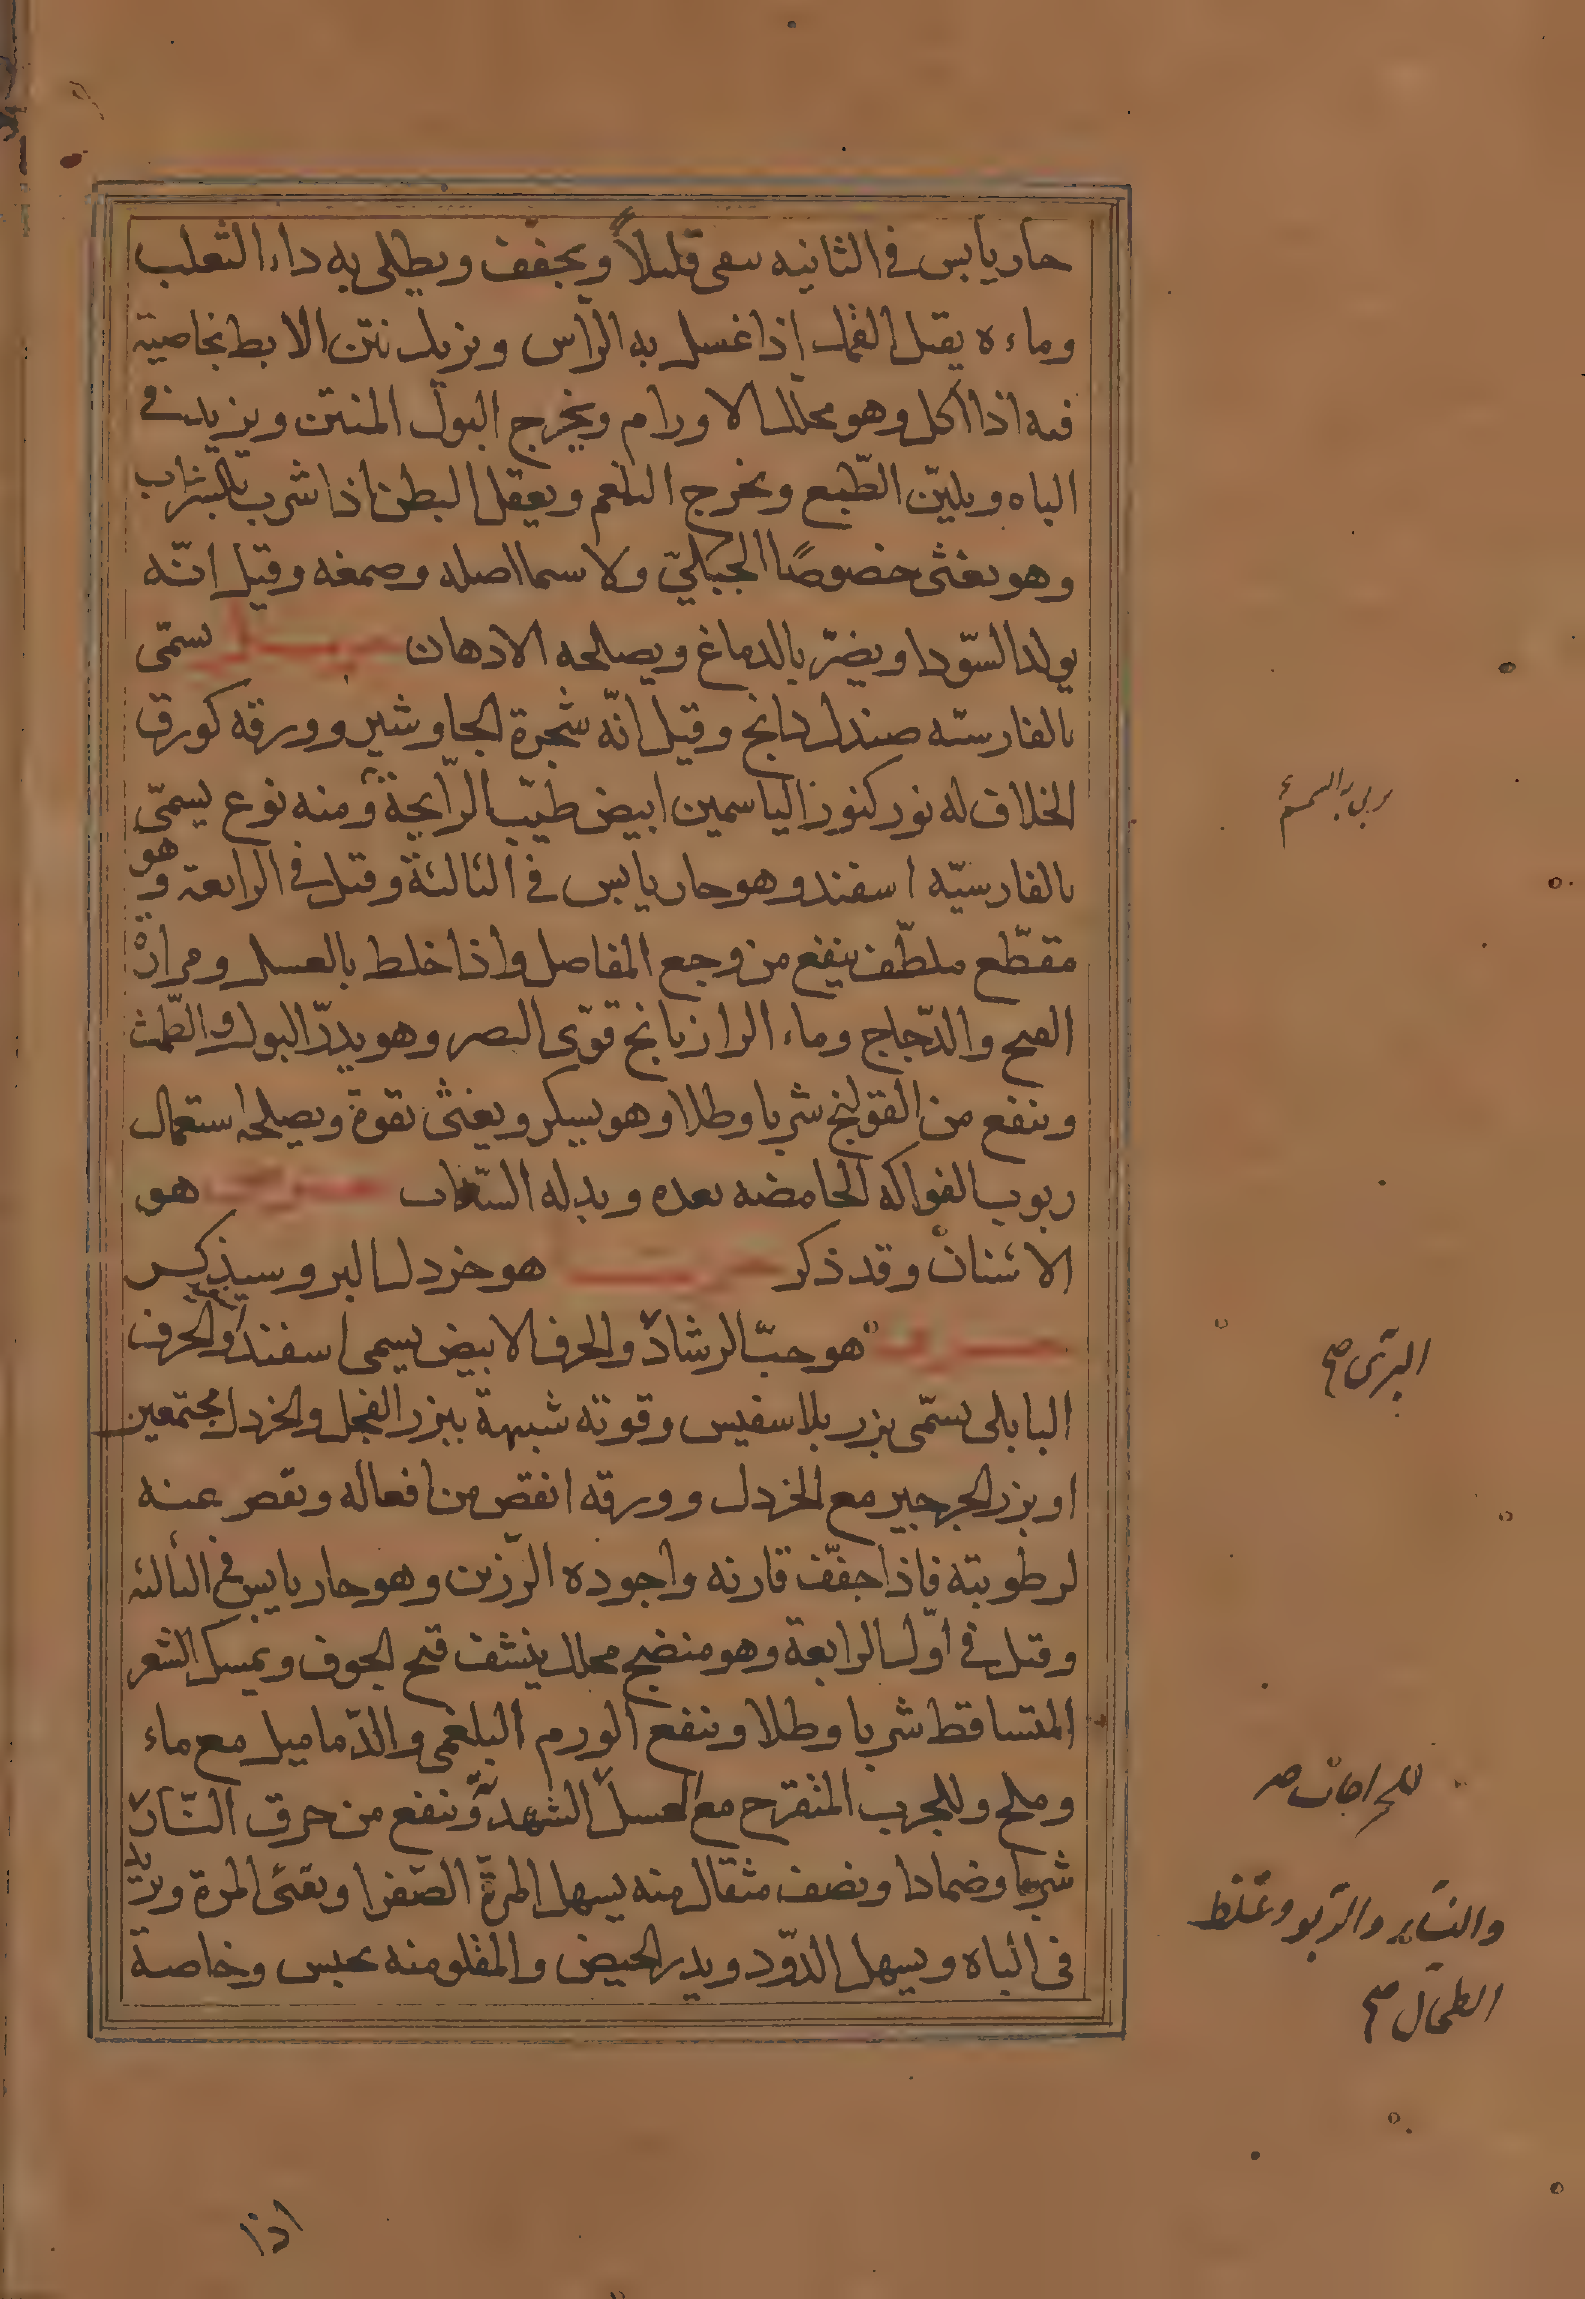 حار يابس فى الثانيه ىىقى قليلاً ويجفف ويطلى به داء الثعلب
وماءه يقتل القمل اذا غسل به الراس ويزيل نتن الابط بخاصية
فيه اذا اكل وهو محلل الاورام ويخرج البول المنتن ويزيد فى
الباه ويلين الطّبع ويخرج البلغم ويعقل البطن اذا شرب بالشراب
وهو يغثى خصوصًا الجبليّ ولا سيما اصله وصمغه وقيل انّه
يولد السّودا ويضرّ بالدماغ ويصلحه الادهان حرمل يسمّى
بالفارسيّه صندل دانج وقيل انّه شجرة الجاوشير وورقه كورق
الخلاف له نور كنور الياسمين ابيض طيّب الرّايحة ومنه نوع يسمّى
بالفارسيّه اسفند وهو حار يابس فى الثالثة وقيل فى الرابعة وهو
مقطّع ملطّف ينفع من وجع المفاصل واذا خلط بالعسل ومرارة
القبج والدّجاج وماء الرازيانج قوّى البصر وهو يدرّ البول والطّمث
وينفع من القولنج شربا وطلا وهو يسكر ويغثى بقوة ويصلحه استعمال
ربوب الفواكه الحامضه بعده وبدله السّذاب حرض هو
الاشنان وقد ذكر هو خردل البر وسيذكر
حرف هو حبّ الرشاد والحرف الابيض يسمى اسفند والحرف
البابلى يسمّى بزر بلاسفيس وقوته شبيهة ببزر الفجل والخردل مجتمعين
او بزر الجرجير مع الخردل وورقه انقص من افعاله ويقصر عنه
لرطوبته فاذا جفّف قارنه واجوده الرّزين وهو حار يابس فى الثالثه
وقيل فى اوّل الرابعة وهو منضج محلل ينشف قيح الجوف ويمسك الشعر
المتساقط شربا وطلا وينفع الورم البلغمى والدّماميل مع ماء
وملح وللجرب المتقرح مع العسل الشهد وينفع من حرق النّار
شربا وضمادا ونصف مثقال منه يسهل المرّة الصّفرا ويقئ المرة ويزيد
فى الباه ويسهل الدّود ويدر الحيض والمقلو منه يحبس وخاصة
البرّى صح
للخراجات صح
والربو وغلظ
الطحال صح
اذا